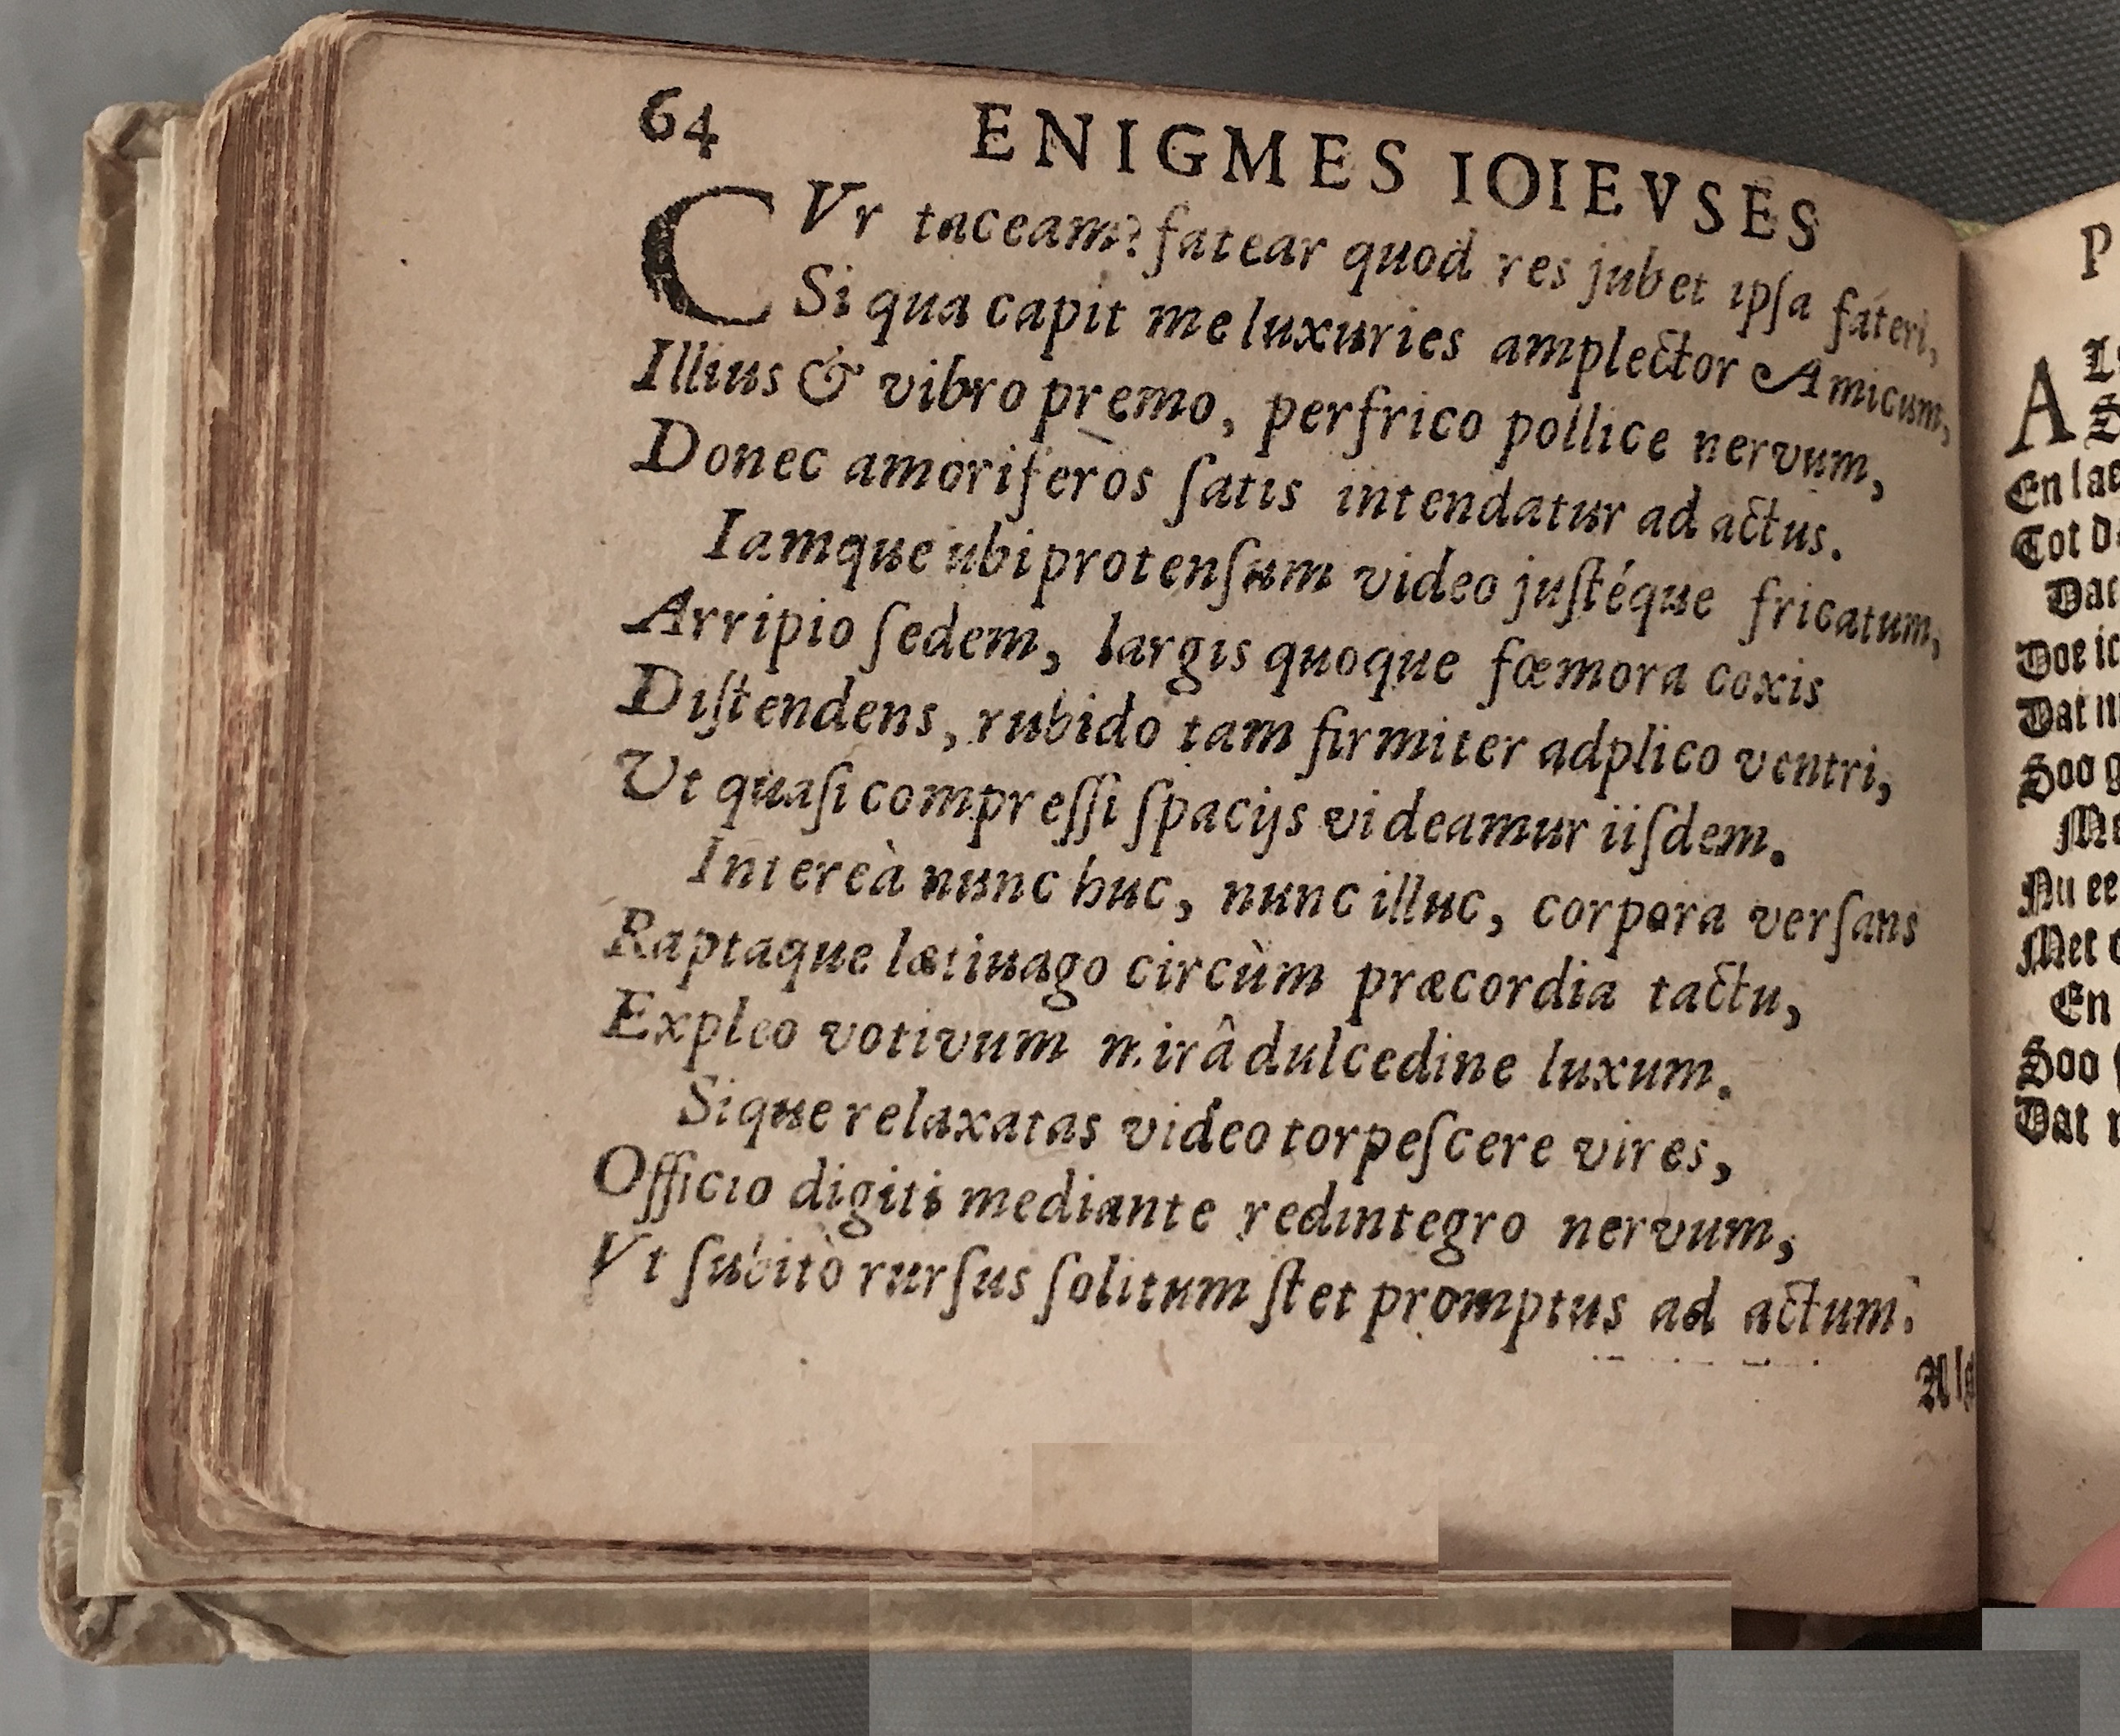 64 ENIGMES IOIEVSES
CVr taceam? fatear quod res jubet ipſa fateri,
Si qua capit me luxuries amplector Amicum,
Illius & vibro premo, perfrico pollice nervum,
Donec amoriferos ſatis intendatur ad actus.
Iamque ubi protenſum video juſtéque fricatum,
Arripio ſedem, largis quoque fœmora coxis
Diſtendens, rubido tam firmiter adplico ventri,
Ut quaſi compreſſi ſpacijs videamur iiſdem.
Intereà nunc huc, nunc illuc, corpora verſans
Raptaque lætiuago circùm præcordia tactu,
Expleo votivum mirâ dulcedine luxum.
Sique relaxatas video torpeſcere vires,
Officio digiti mediante redintegro nervum,
Vt ſubitò rurſus ſolitum ſtet promptus ad actum.
Als
P
A
En
Tot
Doe
Dat
Soo
Nu
Met
En
Soo
Dat